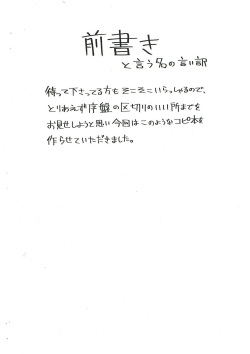 前書き
と言う名の言い訳
待って下さってる方もミニミニいらっしゃるので、
とりわえず序盤の区切りのいい所までを
お見せしようと思い今回はこのようなコピ本を
作らせていただきました。